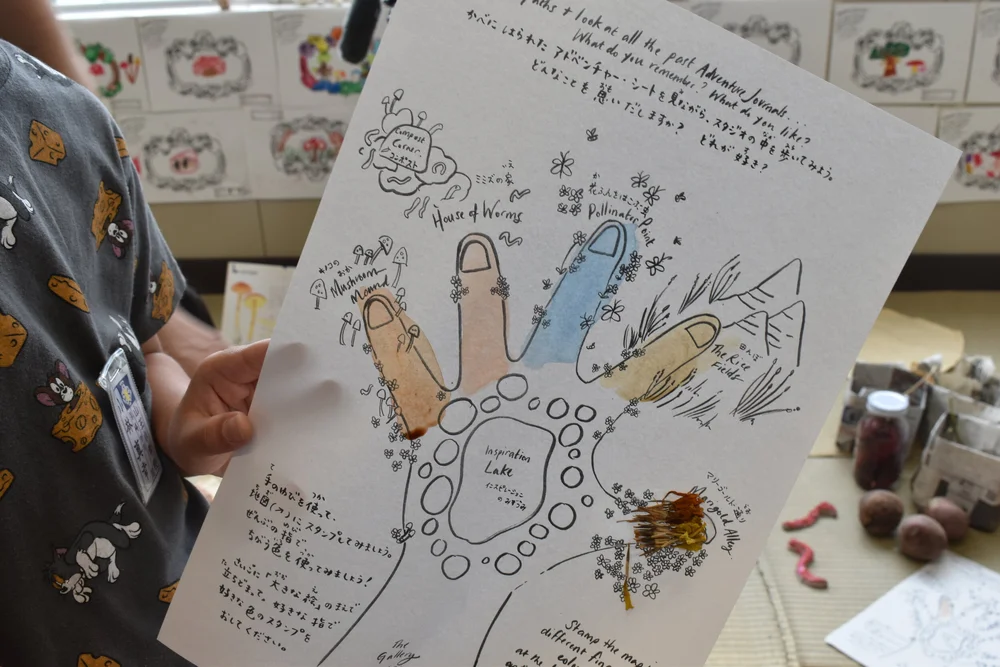 + look at all the past Adventure Journals...
What do you remember? What do you like?
かべにはられた アドベンチャー・シートを見ながら、スタジオの中を歩いてみよう。
どんなことを思いだしますか? どれが好き?
Compost
Corner
コンポスト
ミミズの家
House of Worms
Pollinator Point
キノコの
Mushroom
Mound
田んぼ
The Rice
Fields
Inspiration
Lake
インスピレーション
のみずうみ
マリーゴールド通り
手のゆびを使って、
地図(メ)にスタンプしてみましょう。
ぜんぶの指で、
ちがう色を使ってみましょう!
さいごに「大きな絵」のまえで
立ちどまって、好きな指で
好きな色のスタンプを
おしてください。
The
Gallery
Stamp the map
different fin
colo
at the